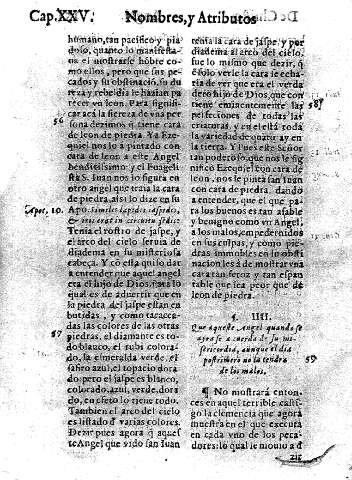 Cap.XXV.
Nombres, y Atributos
humano, tan pacifico y pia
doso, quanto lo manifesta-
ua el mostrarse hõbre co
mo ellos, pero que sus pe-
cados y su obstinaciõ, su du
reza y rebeldia le hazian pa
recer vn leon. Para signifi-
car a a la fiereza de vna per
sona dezimos q̃ tiene cara
56
de leon de piedra. Ya Eze
quiel nos lo à pintado con
cara de leon a este Angel
benditissimo y el Euãgelis
ta S. Iuan nos lo figura en
otro angel que traia la cara
de piedra. assi lo dize en su
Apoc. 10.
Apo. similis lapidis iaspidis,
& iris erat in circuitu sedis.
Tenia el rostro de jaspe, y
el arco del cielo seruia de
diadema en su misteriosa
cabeça. Y cõ esto quiso dar
a entender que aquel angel
era el hijo de Dios, para lo
qual es de aduertir que en
la piedra del jaspe estan en
butidas, y como taracea-
das las colores de las otras
57
piedras. el diamante es to-
do blanco, el rubi colora-
do, la esmeralda verde, el
safiro azul, el topacio dora
do: pero el jaspe es blanco,
colorado, azul, verde, dora
do, en efeto lo tiene todo.
Tambien el arco del cielo
es listado d̃ varias colores.
Dezir pues agora q̃ aques
te Angel que vido san Iuan
tenia la cara de jaspe, y por
diadema al arco del cielo.
fue lo mismo que dezir, q̃
cõ solo verle la cara se echa
ria de ver que era el verda
dero hijo de Dios, que con
tiene eminentemente las
58
perfeciones de todas las
criaturas y en el està toda
la variedad de quanto ay en
la tierra. Y pues este Señor
tan poderoso, que nos le sig
nificò Ezequiel con cara de
leon, nos le pinta san Iuan
con cara de piedra, dando
a entender, que el que pa-
ra los buenos es tan afable
y benigno como vn Angel,
a los malos, empedernidos
en sus culpas, y como pie-
dras immobles en su obsti
nacion les à de mostrar vna
cara tan feroz y tan espan
table que sea peor que de
leon de piedra.
¶. IIII.
Que aqueste Angel quando se
ayra se a cuerda de su mi-
sericordia, aunque el dia
postrimero no la tendra
de los malos.
59
¶ No mostrarà enton-
ces en aquel terrible casti-
go la clemencia que agora
muestra en el que executa
en cada vno de los peca-
dores: lo qual le mouio a d
zir